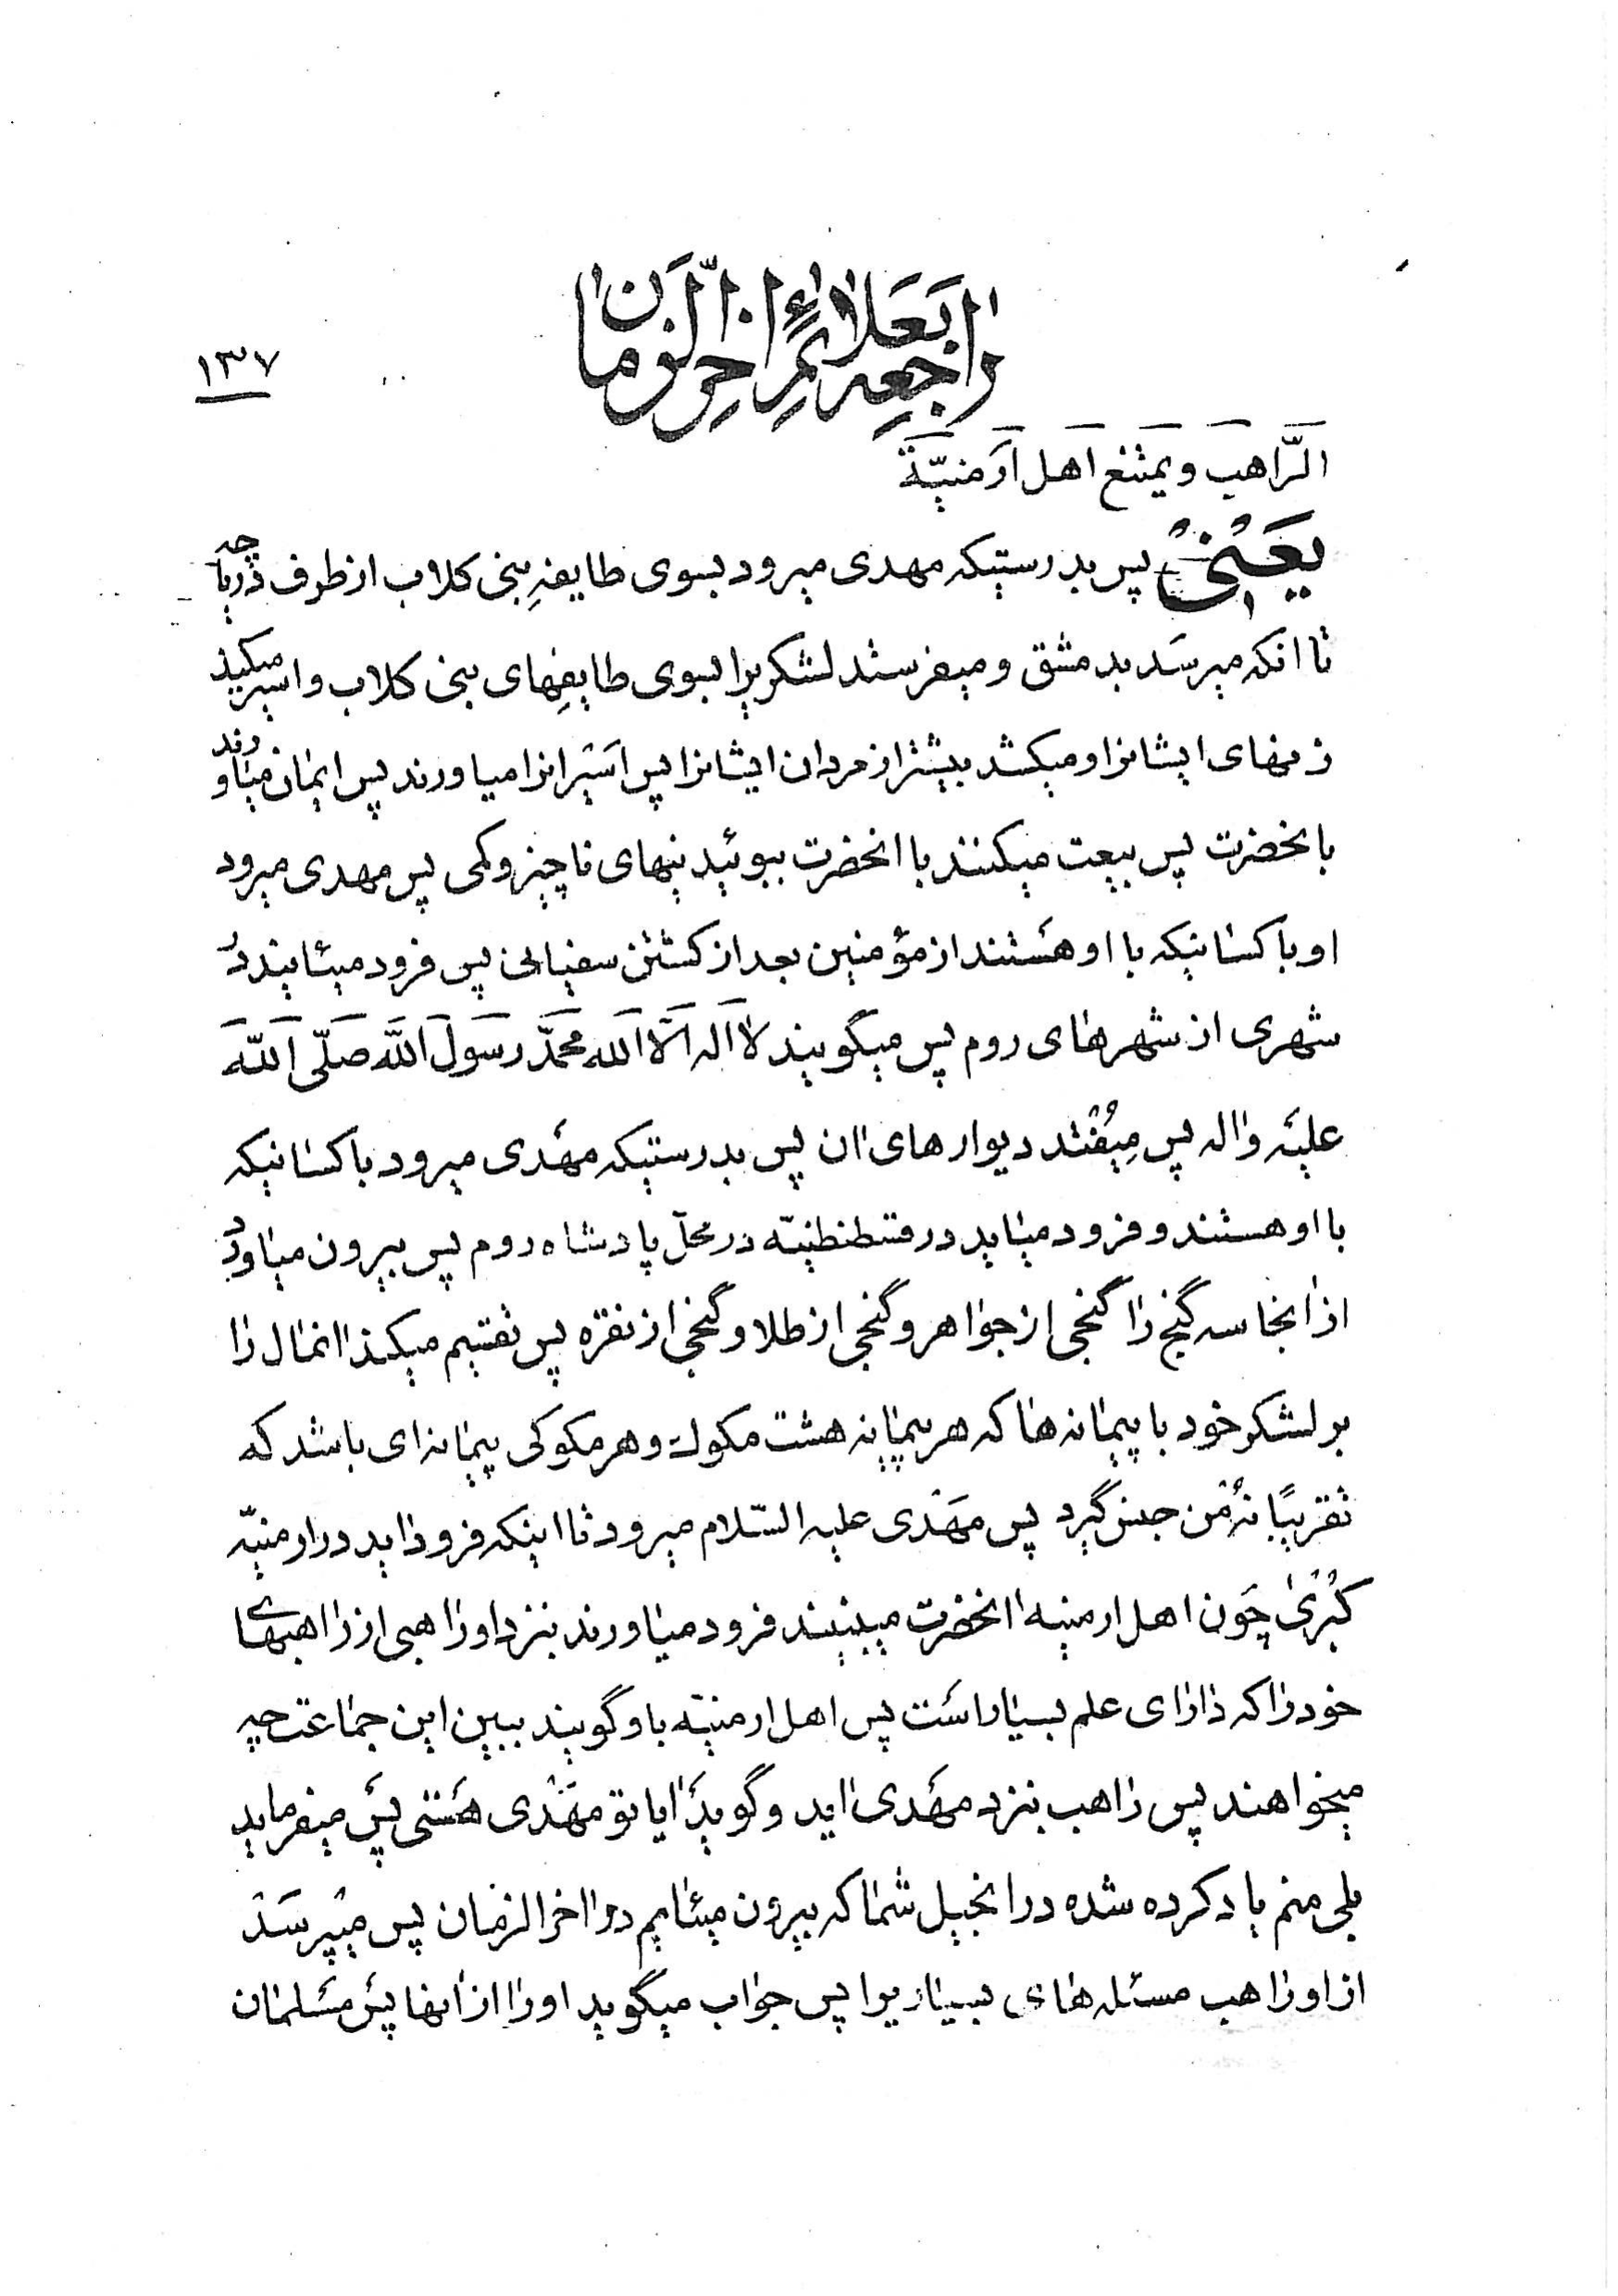 راجعه بعلائم اخرالزمان
١٣٧
الرّاهب و يمتنع اهل ارمنيّة
يعنی پس بدرستيكه مهدی ميرود بسوی طايفهِ بنی كلاب از طرف درياچه
تا انكه ميرسَد بدمشق و ميفرستد لشكريرا بسوی طايفهِای بنی كلاب و اسير ميكند
زنهای ايشانرا و ميكشد بيشتر از مردان ايشانرا پس اسَيرانرا مياورند پس ايمان مياورند
بانحضرت پس بيعت ميكنند با انحضرت ببوئيدنيهای ناچيز و كمی پس مهدی ميرود
او با كسانيكه با او هسَتند از مؤمنين بعد از كشتن سفيانی پس فرود ميئايند در
شهری از شهرهای روم پس ميگويند لا اله الّا الله محمّد رسول اللّه صلّی اللّه
عليه واله پس مِيُفتد ديوارهای ان پس بدرستيكه مهَدی ميرود با كسانيكه
با او هستند و فرود ميايد در قسطنطنيّه در محلّ پادشاه روم پس بيرون مياورد
از انجا سه گنج را گنجی از جواهر و گنجی از طلا و گنجی از نقره پس تقسيم ميكند انمال را
بر لشكر خود با پيمانه ها كه هر پيمانه هشت مكوك و هر مكوكی پيمانه ای باشد كه
تقريبًا نُه من جنس گيرد پس مهَدی عليه السّلام ميرود تا اينكه فرود ايد در ارمنيّه
كُبریٰ چَون اهل ارمنيه انحضرت ميبينند فرود مياورند بنزد او راهبی از راهبهای
خود را كه دارای علم بسيار است پس اهل ارمنيّه باو گويند ببين اين جماعت چه
ميخواهند پس راهب بنزد مهَدی ايد و گويد ايا تو مهَدی هسَتی پسَ ميفرمايد
بلی منم ياد كرده شده در انجيل شما كه بيرون ميئايم در اخرالزمان پس ميپرسَد
از او راهب مسئله های بسياريرا پس جواب ميگويد او را از انها پسَ مسَلمان